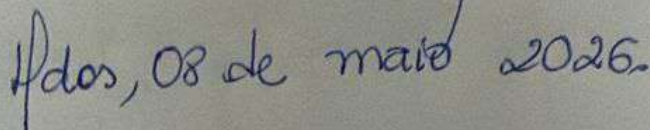 Ados, 08 de maio 2026.